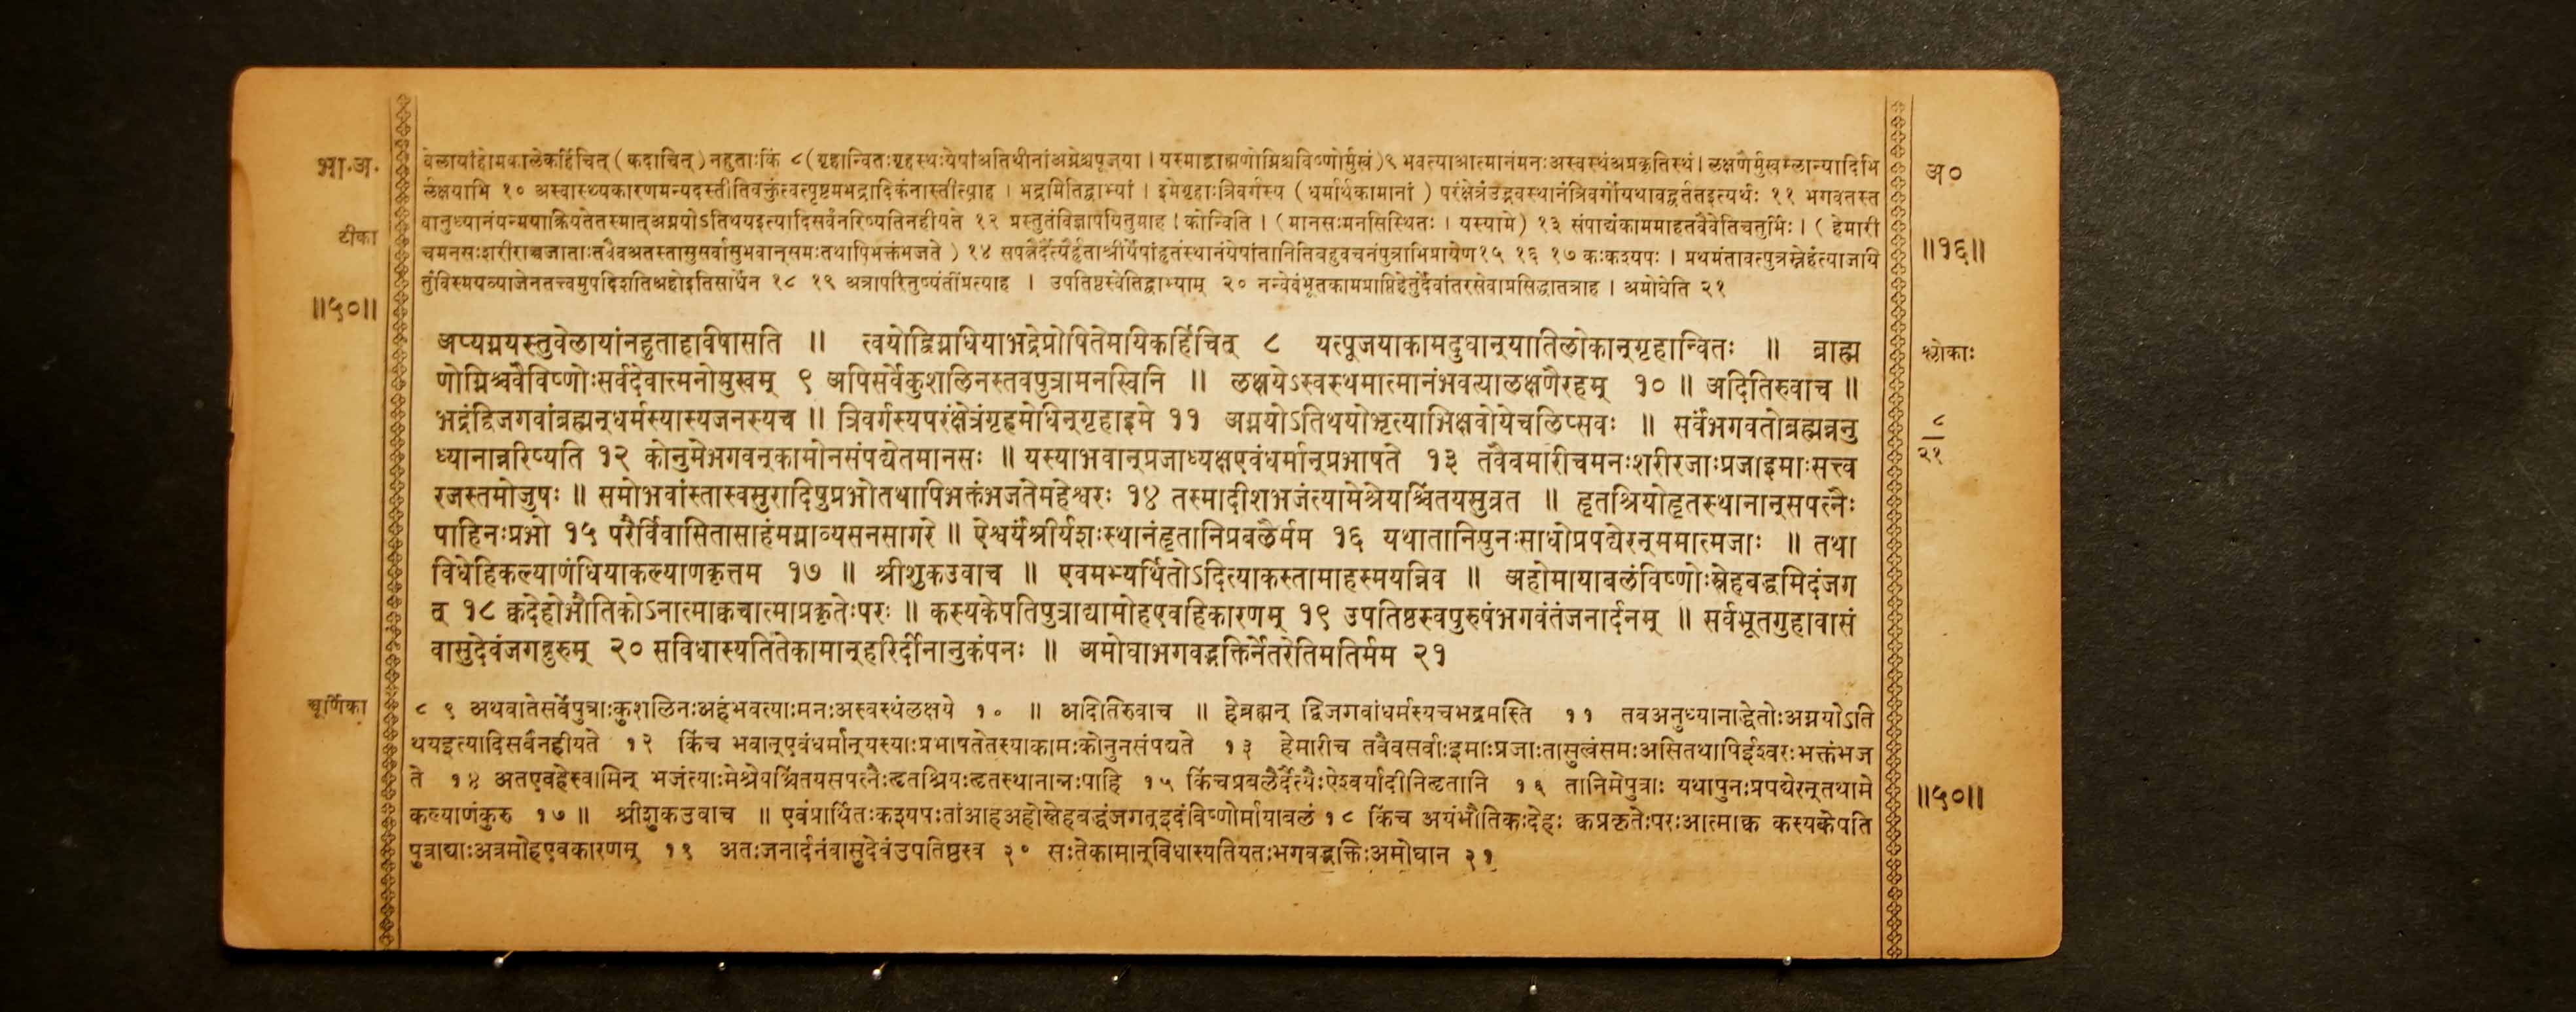 भा.अ.
टीका
॥५०॥
वेलायांहोमकालेकर्हिचित् (कदाचित्) नहुताःकिं ८ (गृहान्वितःगृहस्थःयेषांअतिथीनांअग्नेश्चपूजया । यस्माद्ब्राह्मणोग्निश्चविष्णोर्मुखं) ९ भवत्याआत्मानंमनःअस्वस्थंअप्रकृतिस्थं। लक्षणैर्मुखम्लान्यादिभि
र्लक्षयामि १० अस्वास्थ्यकारणमन्यदस्तीतिवक्तुंत्वत्पृष्टमभद्रादिकंनास्तीत्याह । भद्रमितिद्वाभ्यां । इमेगृहाःत्रिवर्गस्य ( धर्मार्थकामानां ) परंक्षेत्रंउद्भवस्थानंत्रिवर्गोयथावद्वर्ततइत्यर्थः ११ भगवतस्त
वानुध्यानंयन्मयाक्रियतेतस्मात्अग्नयोऽतिथयइत्यादिसर्वंनरिष्यतिनहीयते १२ प्रस्तुतंविज्ञापयितुमाह । कोन्विति । (मानसःमनसिस्थितः । यस्यामे) १३ संपाद्यंकाममाहतवैवेतिचतुर्भिः । ( हेमारी
चमनसःशरीराच्चजाताःतवैवअतस्तासुसर्वासुभवान्समःतथापिभक्तंभजते ) १४ सपत्नैर्दैत्यैर्हृताश्रीर्येषांहृतंस्थानंयेषांतानितिबहुवचनंपुत्राभिप्रायेण१५ १६ १७ कःकश्यपः । प्रथमंतावत्पुत्रस्नेहंत्याजयि
तुंविस्मयव्याजेनतत्त्वमुपदिशतिअहोइतिसार्धेन १८ १९ अत्रापरितुष्यंतींप्रत्याह । उपतिष्ठस्वेतिद्वाभ्याम् २० नन्वेवंभूतकामप्राप्तिहेतुर्देवांतरसेवाप्रसिद्धातत्राह । अमोघेति २१
अप्यग्नयस्तुवेलायांनहुताहविषासति ॥ त्वयोद्विग्नधियाभद्रेप्रोषितेमयिकर्हिचित् ८ यत्पूजयाकामदुघान्यातिलोकान्गृहान्वितः ॥ ब्राह्म
णोग्निश्चवैविष्णोःसर्वदेवात्मनोमुखम् ९ अपिसर्वेकुशलिनस्तवपुत्रामनस्विनि ॥ लक्षयेऽस्वस्थमात्मानंभवत्यालक्षणैरहम् १० ॥ अदितिरुवाच ॥
भद्रंद्विजगवांब्रह्मन्धर्मस्यास्यजनस्यच ॥ त्रिवर्गस्यपरंक्षेत्रंगृहमेधिन्गृहाइमे ११ अग्नयोऽतिथयोभृत्याभिक्षवोयेचलिप्सवः ॥ सर्वंभगवतोब्रह्मन्ननु
ध्यानान्नरिष्यति १२ कोनुमेभगवन्कामोनसंपद्येतमानसः ॥ यस्याभवान्प्रजाध्यक्षएवंधर्मान्प्रभाषते १३ तवैवमारीचमनःशरीरजाःप्रजाइमाःसत्त्व
रजस्तमोजुषः ॥ समोभवांस्तास्वसुरादिषुप्रभोतथापिभक्तंभजतेमहेश्वरः १४ तस्मादीशभजंत्यामेश्रेयश्चिंतयसुव्रत ॥ हृतश्रियोहृतस्थानान्सपत्नैः
पाहिनःप्रभो १५ परैर्विवासितासाहंमग्नाव्यसनसागरे ॥ ऐश्वर्यंश्रीर्यशःस्थानंहृतानिप्रबलैर्मम १६ यथातानिपुनःसाधोप्रपद्येरन्ममात्मजाः ॥ तथा
विधेहिकल्याणंधियाकल्याणकृत्तम १७ ॥ श्रीशुकउवाच ॥ एवमभ्यर्थितोऽदित्याकस्तामाहस्मयन्निव ॥ अहोमायाबलंविष्णोःस्नेहबद्धमिदंजग
त् १८ क्वदेहोभौतिकोऽनात्माक्वचात्माप्रकृतेःपरः ॥ कस्यकेपतिपुत्राद्यामोहएवहिकारणम् १९ उपतिष्ठस्वपुरुषंभगवंतंजनार्दनम् ॥ सर्वभूतगुहावासं
वासुदेवंजगद्गुरुम् २० सविधास्यतितेकामान्हरिर्दीनानुकंपनः ॥ अमोघाभगवद्भक्तिर्नेतरेतिमतिर्मम २१
चूर्णिका
८ ९ अथवातेसर्वेपुत्राःकुशलिनःअहंभवत्याःमनःअस्वस्थंलक्षये १० ॥ अदितिरुवाच ॥ हेब्रह्मन् द्विजगवांधर्मस्यचभद्रमस्ति ११ तवअनुध्यानाद्धेतोःअग्नयोऽति
थयइत्यादिसर्वंनहीयते १२ किंच भवान्एवंधर्मान्यस्याःप्रभाषतेतस्याकामःकोनुनसंपद्यते १३ हेमारीच तवैवसर्वाःइमाःप्रजाःतासुत्वंसमःअसितथापिईश्वरःभक्तंभज
ते १४ अतएवहेस्वामिन् भजंत्याःमेश्रेयश्चिंतयसपत्नैःहृतश्रियःहृतस्थानान्नःपाहि १५ किंचप्रबलैर्दैत्यैःऐश्वर्यादीनिहृतानि १६ तानिमेपुत्राः यथापुनःप्रपद्येरन्तथामे
कल्याणंकुरु १७ ॥ श्रीशुकउवाच ॥ एवंप्रार्थितःकश्यपःतांआहअहोस्नेहबद्धंजगत्इदंविष्णोर्मायाबलं १८ किंच अयंभौतिकःदेहः क्वप्रकृतेःपरःआत्माक्व कस्यकेपति
पुत्राद्याःअत्रमोहएवकारणम् १९ अतःजनार्दनंवासुदेवंउपतिष्ठस्व २० सःतेकामान्विधास्यतियतःभगवद्भक्तिःअमोघान २१
अ०
॥१६॥
श्लोकाः
८
२१
॥५०॥